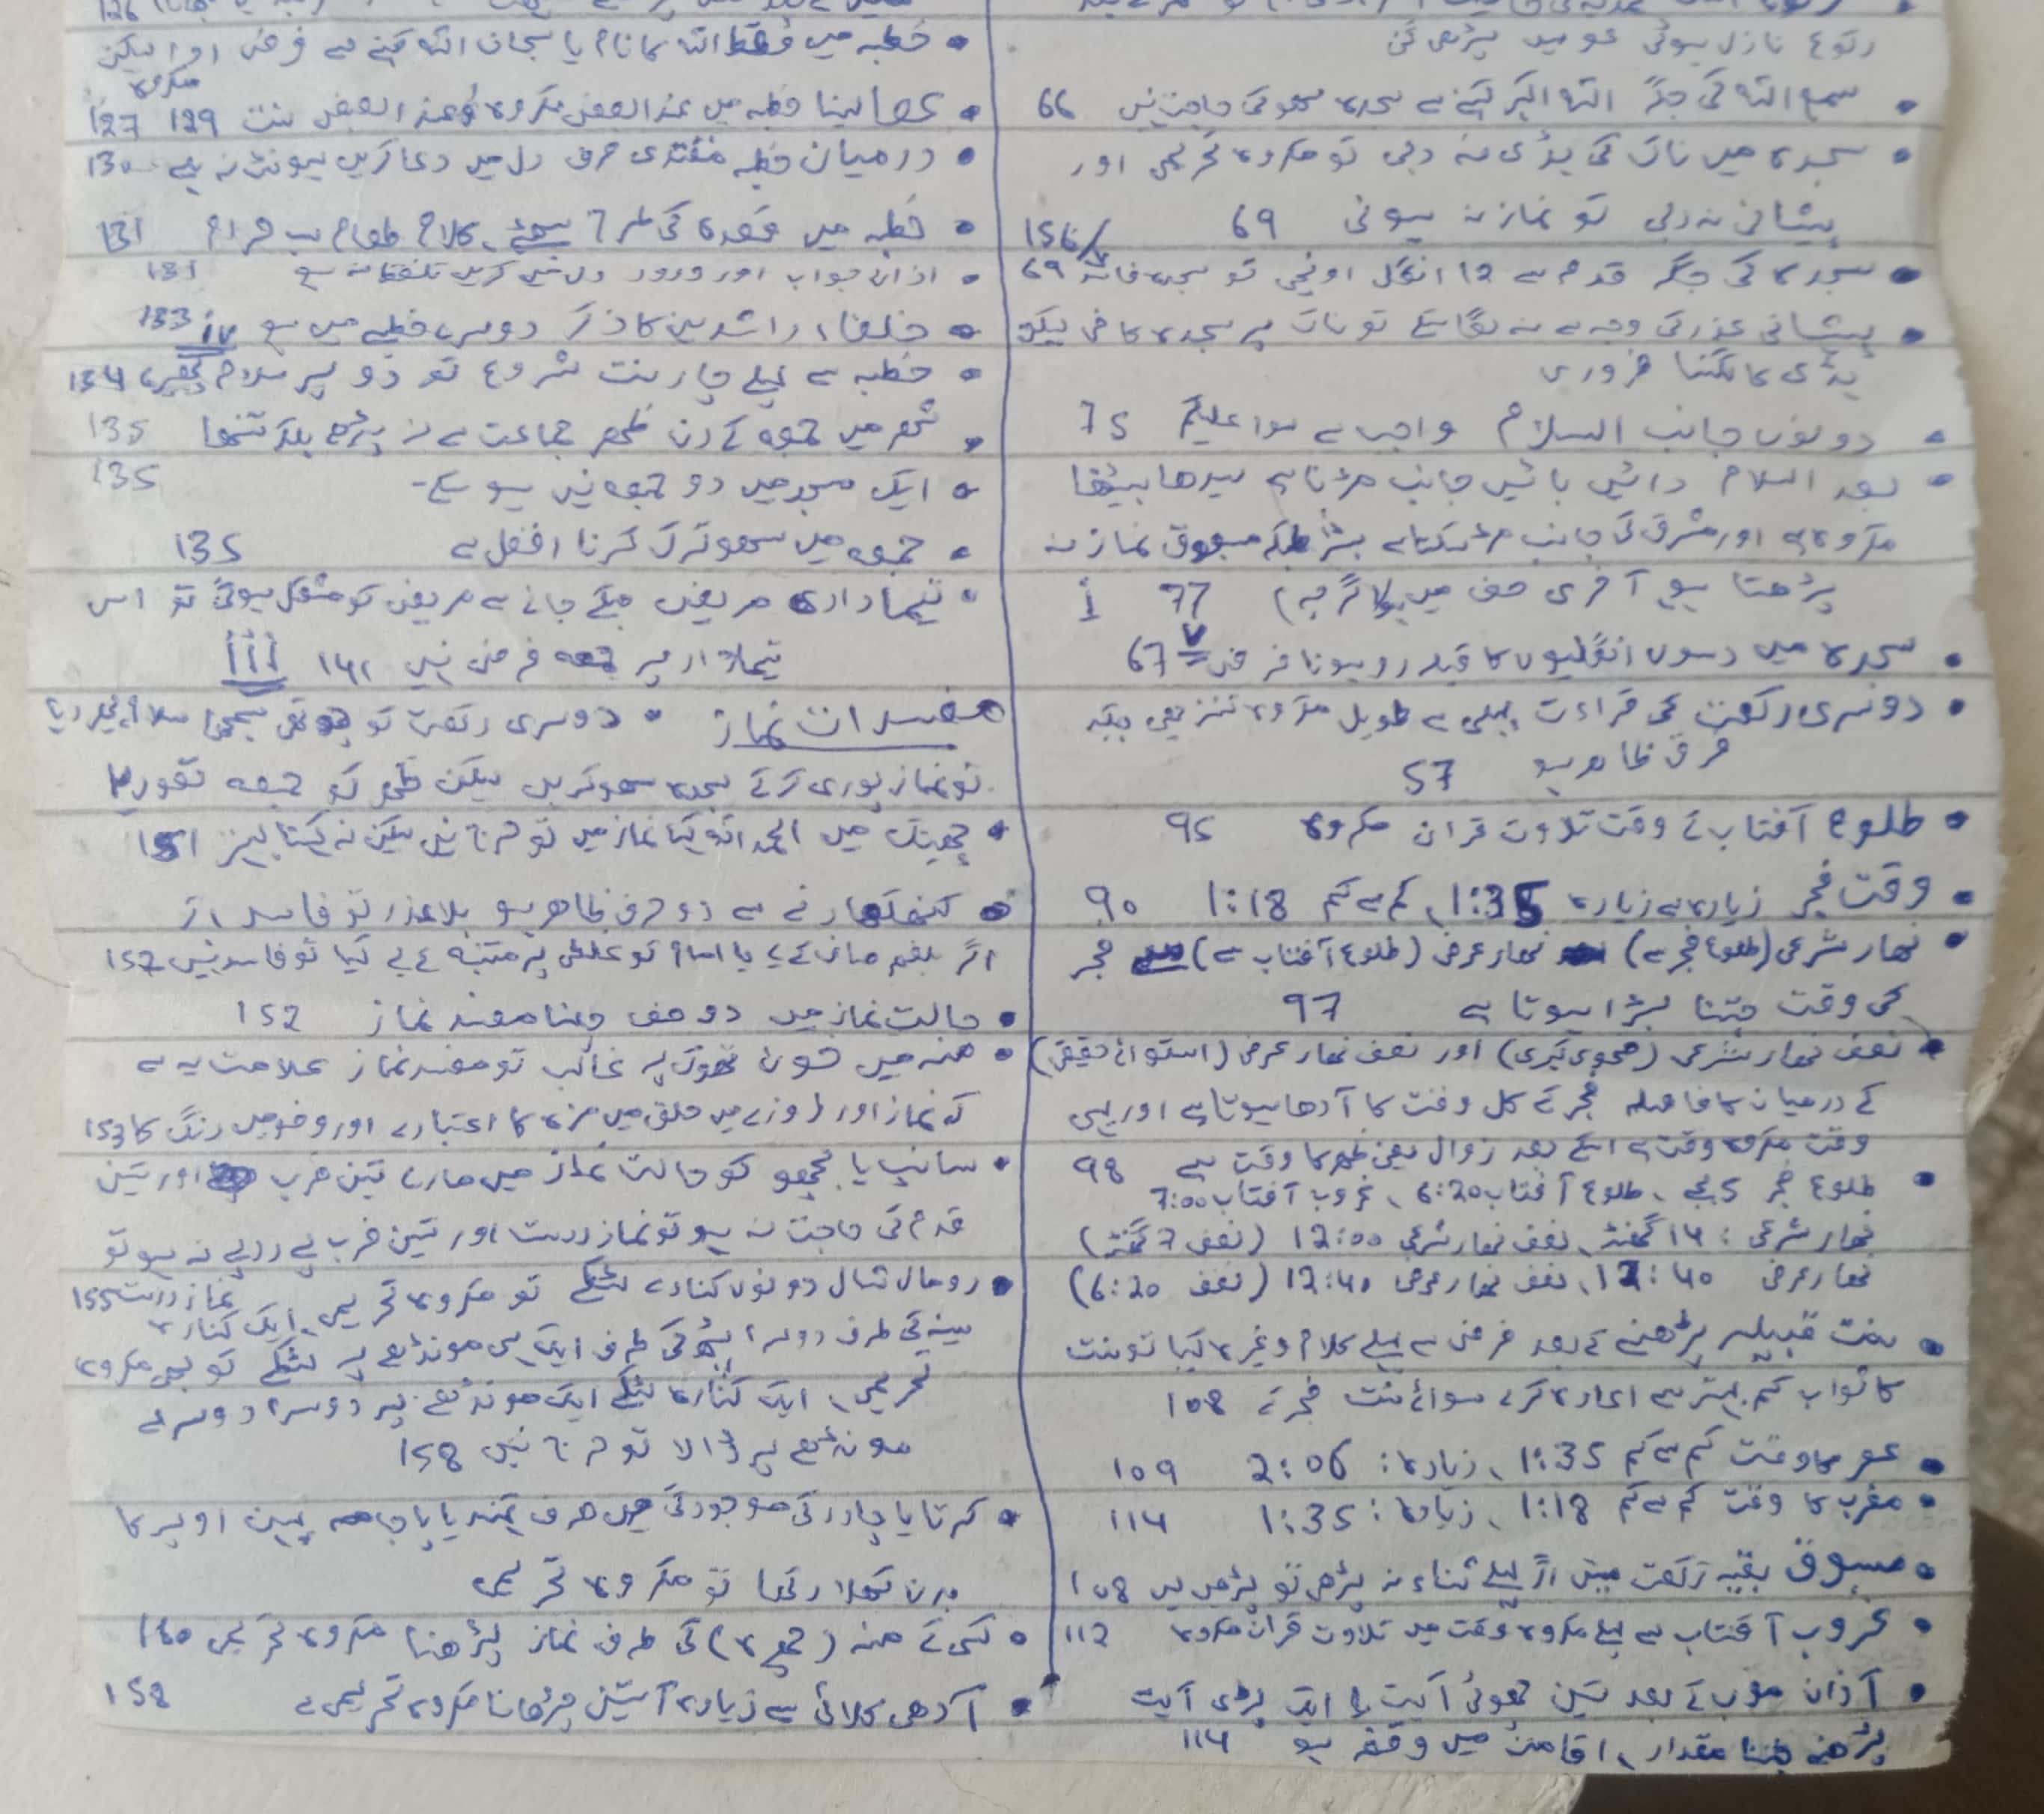 رکوع نازل ہوئی عربی پڑھی گئی
• سمع اللہ کی جگہ اللہ اکبر کہنے سے سجدہ سھو کی حاجت نہیں 66
• سجدہ میں ناک کی ہڈی نہ دبی تو مکروہ تحریمی اور
پیشانی نہ دبی تو نماز نہ ہوئی 69
• سجدہ کی جگہ قدم سے 12 انگل اونچی تو سجدہ 69
• پیشانی عذر کی وجہ سے نہ لگا سکے تو ناک پر سجدہ کافی لیکن
ہڈی کا لگنا ضروری
• دونوں جانب السلام واجب ہے سوا علیکم 75
• بعد السلام دائیں بائیں جانب مڑنا ہے سیدھا بیٹھنا
مکروہ ہے اور مشرق کی جانب مڑ سکتا ہے بشرطیکہ مسبوق نماز نہ
پڑھتا ہو آخری صف میں 77
• سجدہ میں دسوں انگلیوں کا قبلہ رو ہونا فرض 67
• دوسری رکعت کی قراءت پہلی سے طویل مکروہ تنزیھی جبکہ
فرق ظاہر ہو 57
• طلوع آفتاب کے وقت تلاوت قرآن مکروہ 95
• وقت فجر زیادہ سے زیادہ 1:35، کم سے کم 1:18 90
• نھار شرعی (طلوع فجر سے) نھار عرفی (طلوع آفتاب سے) فجر
کی وقت جتنا بڑا ہوتا ہے 97
• نصف نھار شرعی (ضحوی کبری) اور نصف نھار عرفی (استوائے حقیقی)
کے درمیان کا فاصلہ فجر کے کل وقت کا آدھا ہوتا ہے اور یہی
وقت مکروہ وقت ہے اسکے بعد زوال یعنی ظھر کا وقت ہے 98
• طلوع فجر 5 بجے، طلوع آفتاب 6:20، غروب آفتاب 7:00
نھار شرعی : 14 گھنٹہ، نصف نھار شرعی 12:00 (نصف 7 گھنٹہ)
نھار عرفی 12:40، نصف نھار عرفی 12:40 (نصف 6:20)
• سنت قبلیہ پڑھنے کے بعد فرض سے پہلے کلام وغیرہ کیا تو سنت
کا ثواب کم بہتر ہے اعادہ کرے سوائے سنت فجر کے 108
• عصر کا وقت کم سے کم 1:35، زیادہ: 2:06 109
• مغرب کا وقت کم سے کم 1:18، زیادہ: 1:35 114
• مسبوق بقیہ رکعت میں اگر پہلے ثناء نہ پڑھی تو پڑھ لیں 108
• غروب آفتاب سے پہلے مکروہ وقت میں تلاوت قرآن مکروہ 112
• آذان مغرب کے بعد تین چھوٹی آیت یا ایک بڑی آیت
پڑھنے جتنا مقدار، اقامت میں وقفہ ہو 114
126
• خطبہ میں فقط اللہ کا نام یا سبحان اللہ کہنے سے فرض ادا لیکن
مکروہ
• عصا لینا خطبہ میں عند البعض مکروہ و عند البعض سنت 129 127
• درمیان خطبہ مقتدی صرف دل میں دعا کریں ہونٹ نہ ہلے 130
• خطبہ میں قعدہ کی طرح بیٹھے، کلام طعام سب حرام 131
• اذان جواب اور درود دل میں کریں تلفظ نہ ہو 131
• خلفاء راشدین کا ذکر دوسرے خطبے میں ہو 133 iv
• خطبہ سے پہلے چار سنت شروع تو دو پر سلام پھیرے 134
• شھر میں جمعہ کے دن ظھر جماعت سے نہ پڑھے بلکہ تنھا 135
• ایک مسجد میں دو جمعہ نہیں ہو سکے۔ 135
• جمعہ میں سھو ترک کرنا افضل ہے 135
• تیماداری مریض چلے جانے سے مریض کو مشکل ہوگی تو اس
تیماردار پر جمعہ فرض نہیں 141 iii
مفسدات نماز • دوسری رکعت کو چوتھی سمجھا سلام پھیر دیا
تو نماز پوری کرکے سجدہ سھو کریں لیکن ظھر کو جمعہ تصور کیا
• چھینک میں الحمد اللہ کہا نماز میں تو حرج نہیں لیکن نہ کہنا بہتر 151
• کھنکھارنے سے دو حرف ظاہر ہو بلا عذر تو فاسد اگر
اگر بلغم صاف کے لیے یا امام کو غلطی پر متنبہ کے لیے کیا تو فاسد نہیں 152
• حالت نماز میں دو صف چلنا مفسد نماز 152
• منہ میں خون تھوک پر غالب تو مفسد نماز علامت یہ ہے
کہ نماز اور روزے میں حلق میں مزہ کا اعتبار ہے اور وضو میں رنگ کا 153
• سانپ یا بچھو کو حالت نماز میں مارے تین ضرب اور تین
قدم کی حاجت نہ ہو تو نماز درست اور تین ضرب پے درپے نہ ہو تو
نماز درست 155
• رومال شال دونوں کنارے لٹکے تو مکروہ تحریمی، ایک کنارہ
سینہ کی طرف دوسرا پیٹھ کی طرف ایک ہی مونڈھے پر لٹکے تو بھی مکروہ
تحریمی، ایک کنارہ لٹکے ایک مونڈھے پر دوسرا دوسرے
مونڈھے پر ڈالا تو حرج نہیں 158
• کرتا یا چادر کی موجودگی میں صرف تہبند یا پاجامہ پہن اوپر کا
بدن کھلا رکھا تو مکروہ تحریمی
• کسی کے منہ (چہرہ) کی طرف نماز پڑھنا مکروہ تحریمی 160
• آدھی کلائی سے زیادہ آستین چڑھانا مکروہ تحریمی ہے 158